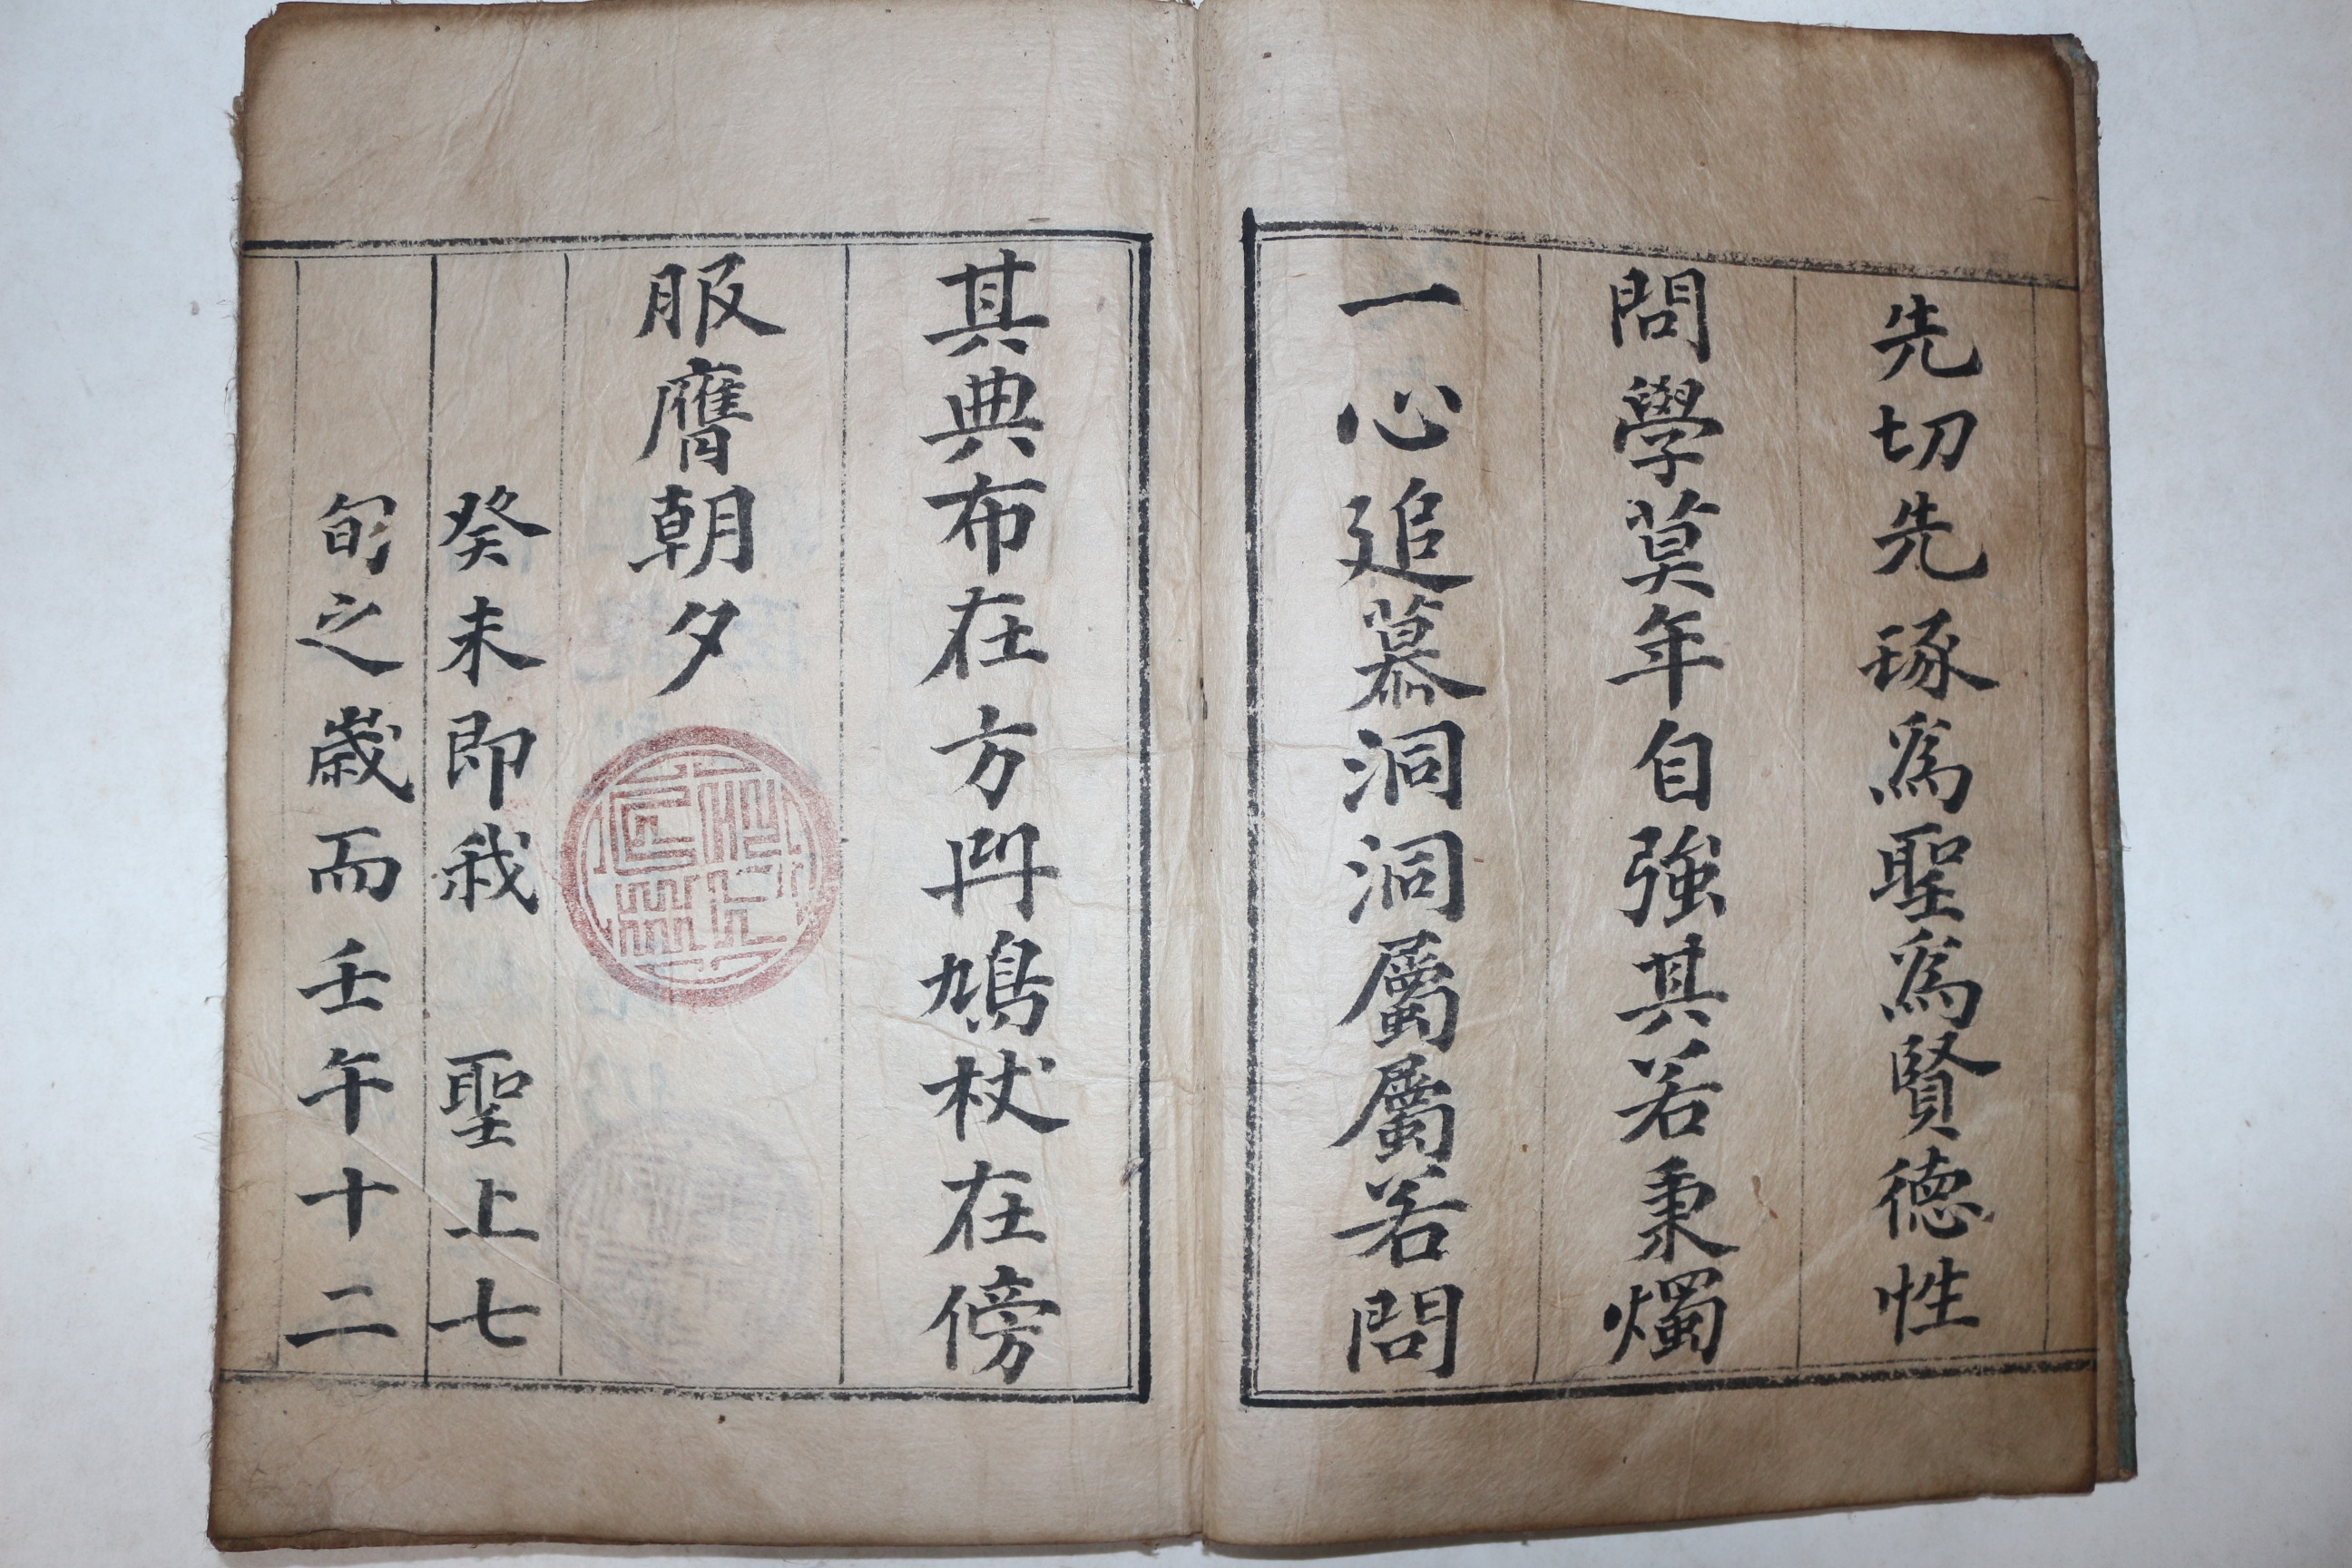 先切先琢爲聖爲賢德性
問學莫年自強其若秉燭
一心追慕洞洞屬屬若問
其典布在方冊鳩杖在傍
服膺朝夕
癸未即我 聖上七
旬之歲而壬午十二